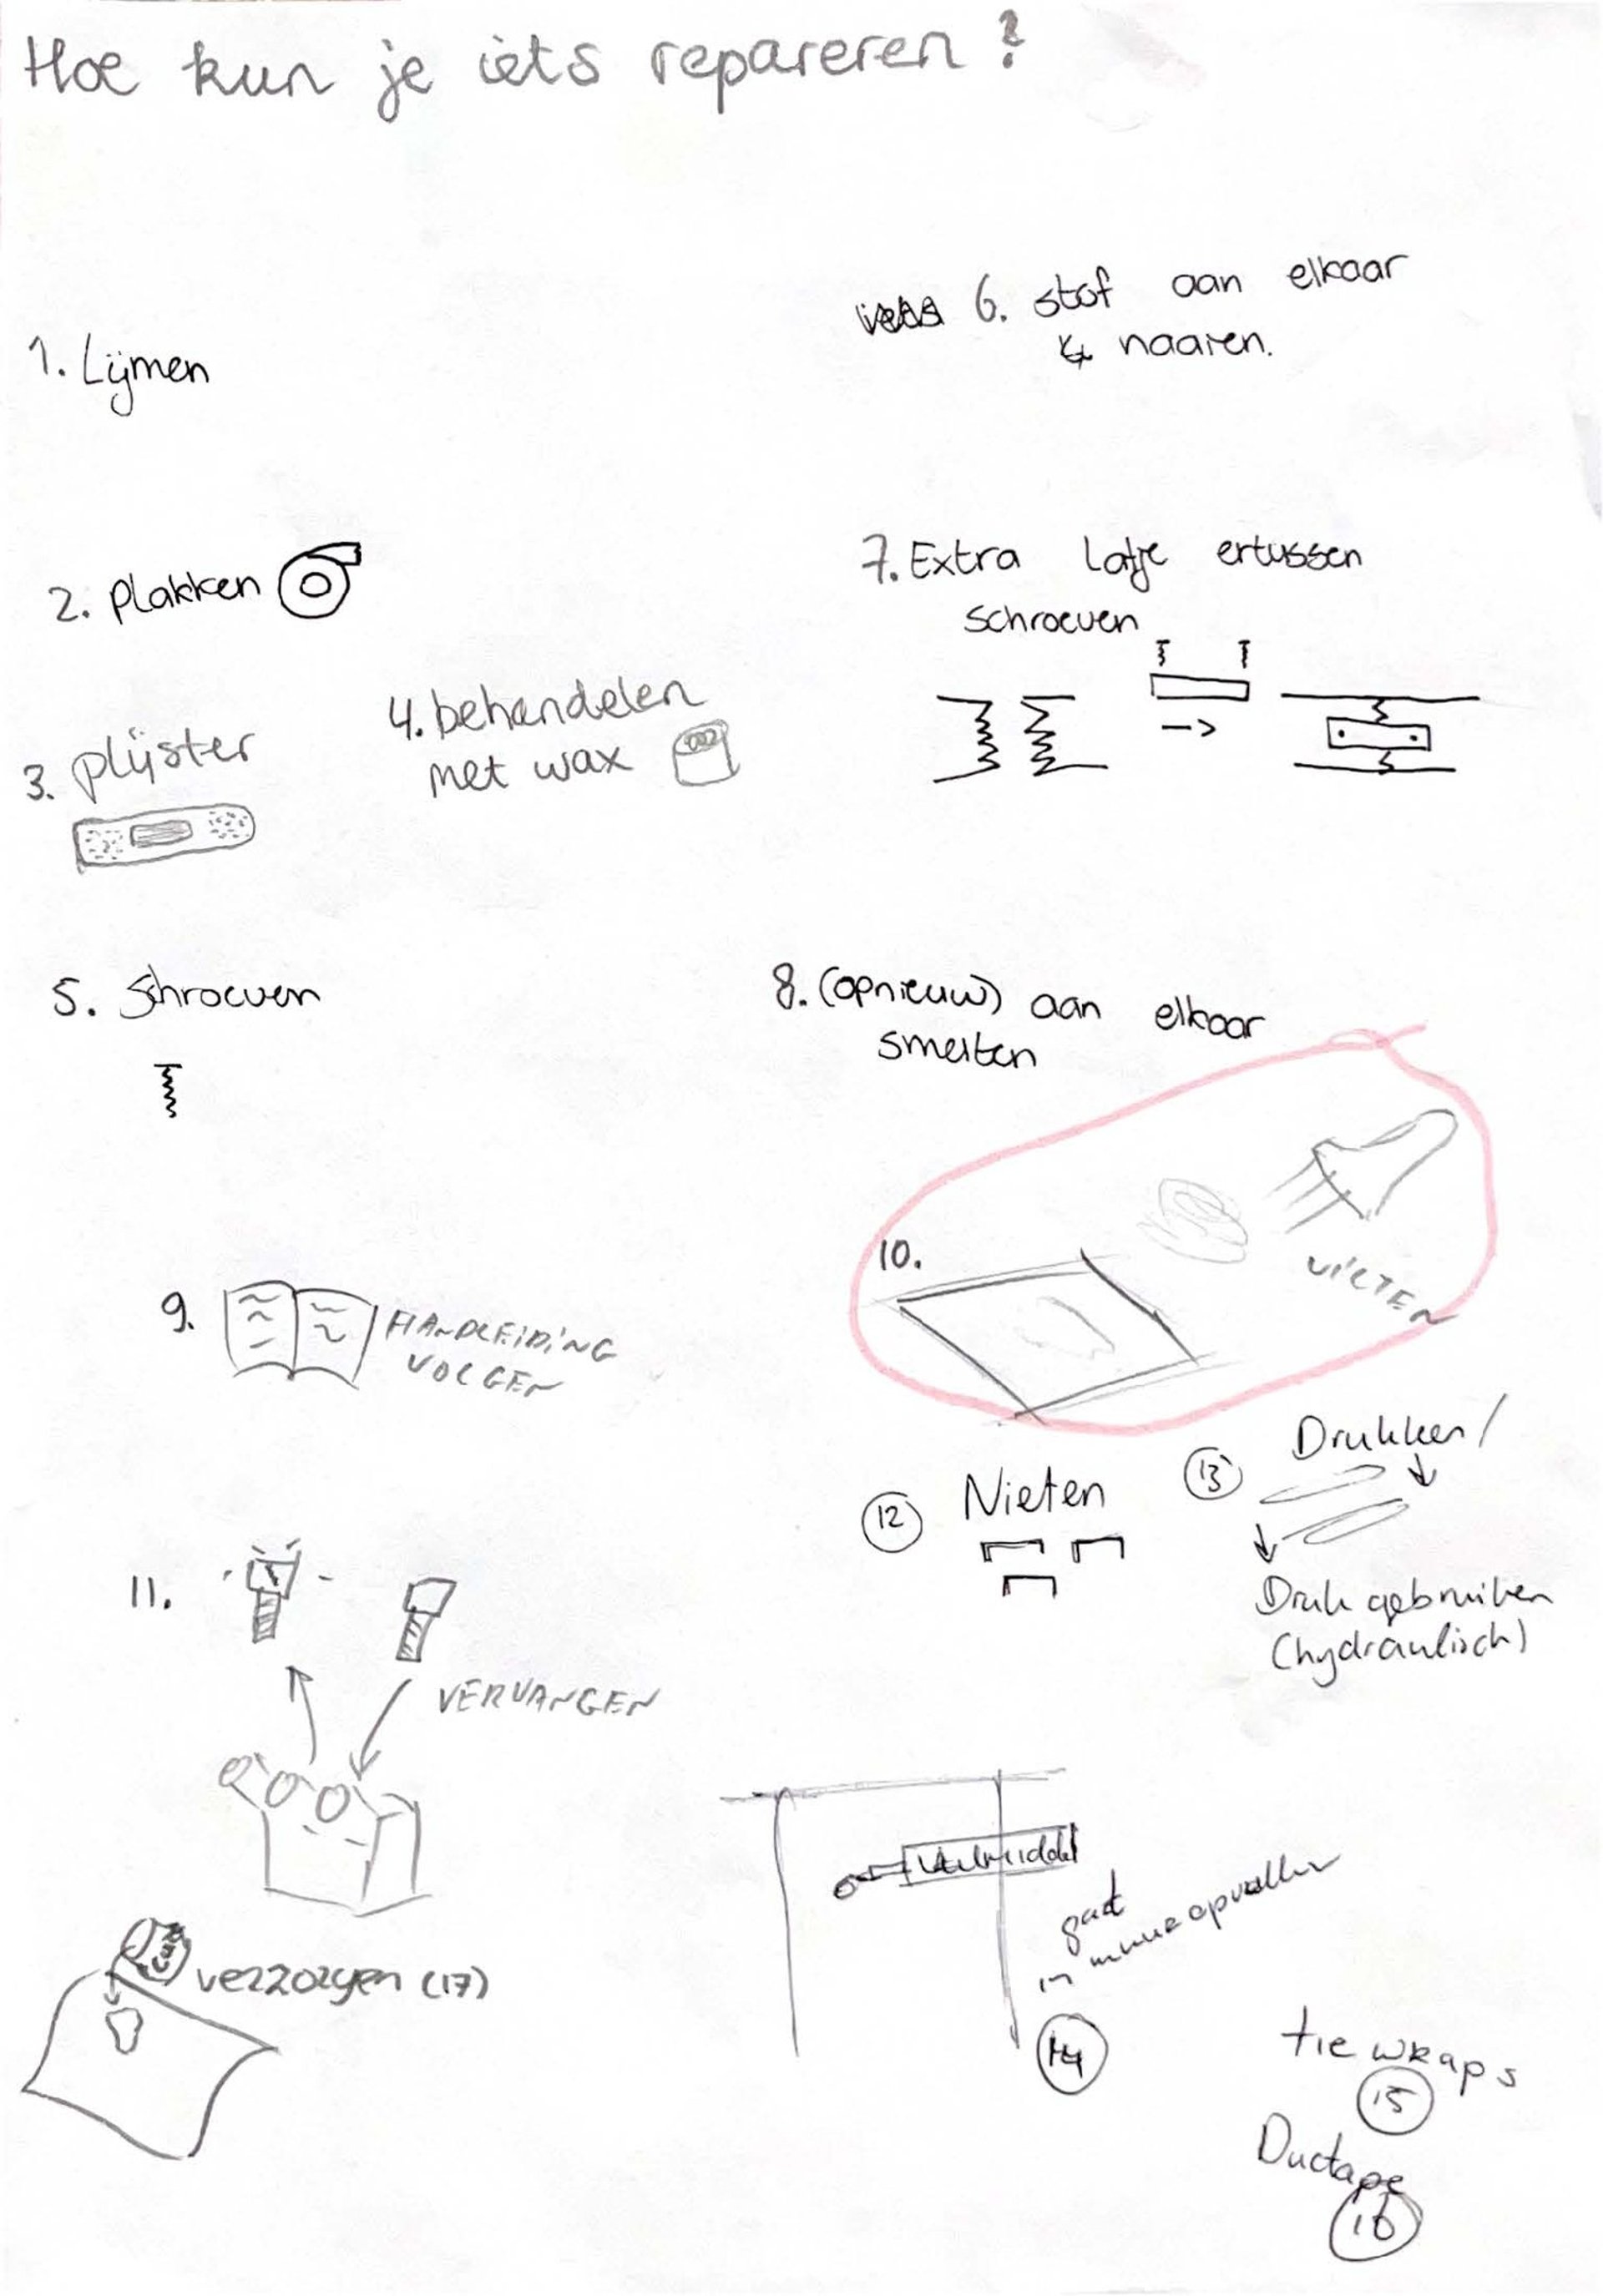 Hoe kun je iets repareren?
1. Lijmen
2. plakken
3. plijster
4. behandelen
met wax
5. Schroeven
6. stof aan elkaar
naaien.
7. Extra latje ertussen
schroeven
8. (opnieuw) aan elkaar
smelten
9. HANDLEIDING
VOLGEN
10.
VILTEN
11.
VERVANGEN
12 Nieten
13 Drukken/
Druk gebruiken
(hydraulisch)
Vulmiddel
gat
in muur opvullen
14
tie wraps
15
Ductape
16
verzorgen (17)